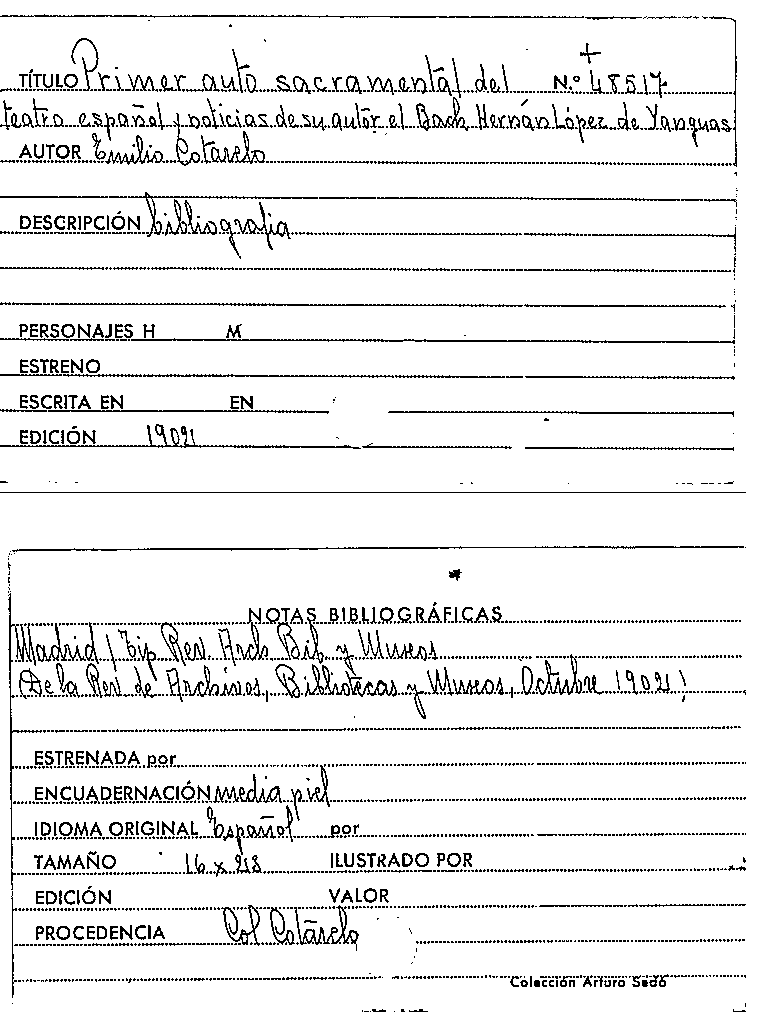 TÍTULO Primer auto sacramental del N.º 48517
teatro español y noticias de su autor el Bach Hernán López de Yanguas
AUTOR Emilio Cotarelo
DESCRIPCIÓN bibliografia
PERSONAJES H M
ESTRENO
ESCRITA EN EN
EDICIÓN 1902
NOTAS BIBLIOGRÁFICAS
Madrid / Tip Rev. Arch Bib y Museos
(De la Rev de Archivos, Bibliotecas y Museos, Octubre 1902)
ESTRENADA por
ENCUADERNACIÓN media piel
IDIOMA ORIGINAL Español por
TAMAÑO 16 x ILUSTRADO POR
EDICIÓN VALOR
PROCEDENCIA Col Cotarelo
Colección Arturo Sedó